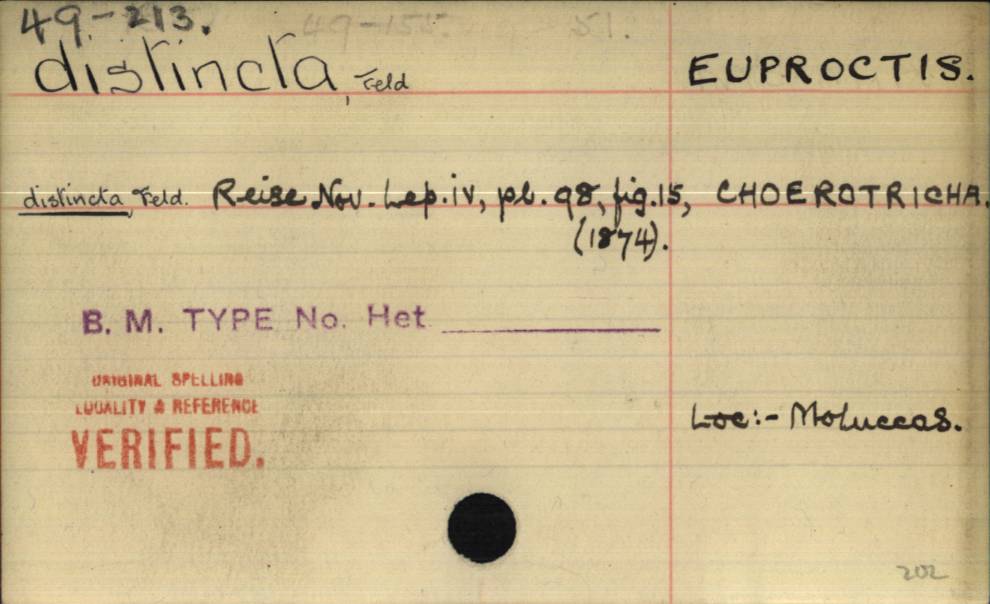 49.-213. 49-155. 51.
distincta, Feld EUPROCTIS.
distincta, Feld. Reise Nov. Lep. iv, pl. 98, fig. 15, CHOEROTRICHA.
(1874).
B. M. TYPE No. Het
ORIGINAL SPELLING
LOCALITY & REFERENCE
VERIFIED.
Loc:- Moluccas.
202